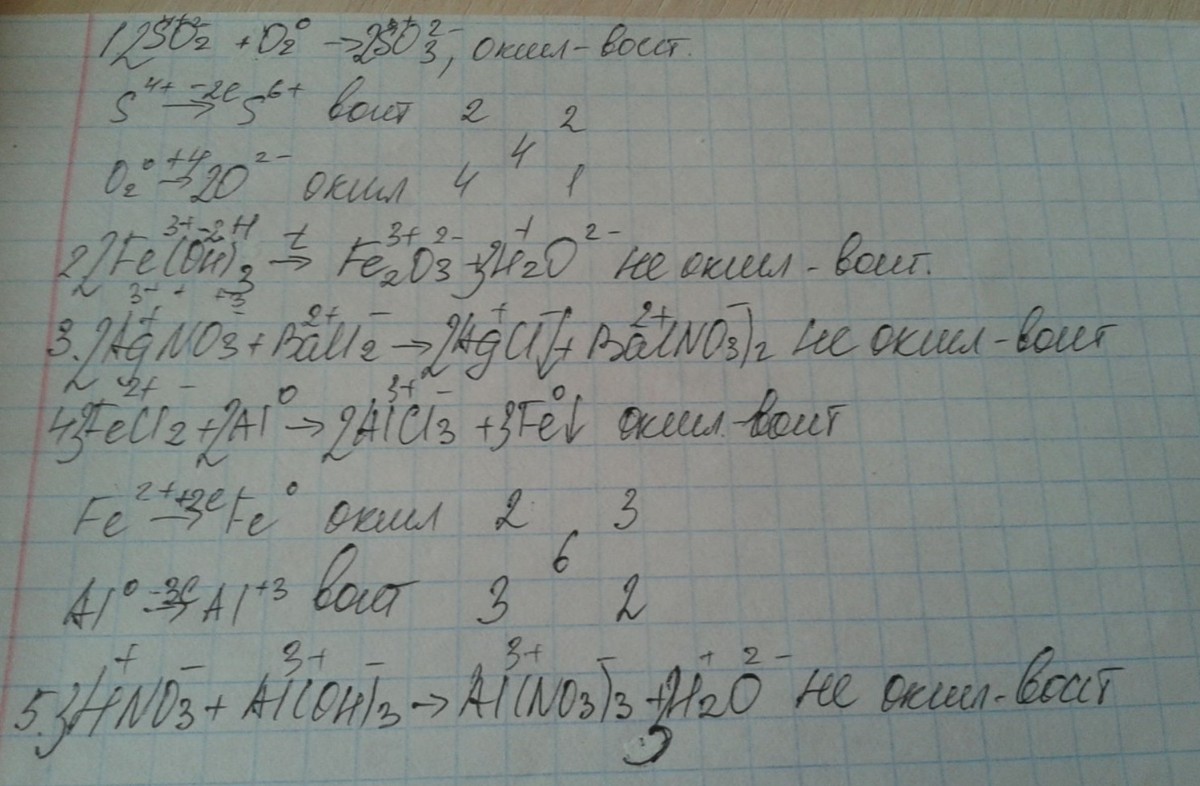 1) 2S⁴⁺O₂²⁻ + O₂⁰ → 2SO₃²⁻, окисл-восст.
S⁴⁺ –2e→ S⁶⁺ восст 2 2
4
O₂⁰ +4→ 2O²⁻ окисл 4 1
2) 2Fe³⁺(O⁻²H⁺)₃ t→ Fe₂³⁺O₃²⁻ + 3H₂⁺O²⁻ не окисл-восст.
3. 2Ag⁺NO₃⁻ + Ba²⁺Cl₂⁻ → 2Ag⁺Cl⁻↓ + Ba²⁺(NO₃)₂⁻ не окисл-восст
4. 3Fe²⁺Cl₂⁻ + 2Al⁰ → 2Al³⁺Cl₃⁻ + 3Fe⁰↓ окисл-восст
Fe²⁺ +2e→ Fe⁰ окисл 2 3
6
Al⁰ –3e→ Al⁺³ восст 3 2
5. 3H⁺NO₃⁻ + Al³⁺(OH)₃⁻ → Al³⁺(NO₃)₃⁻ + 3H₂⁺O²⁻ не окисл-восст